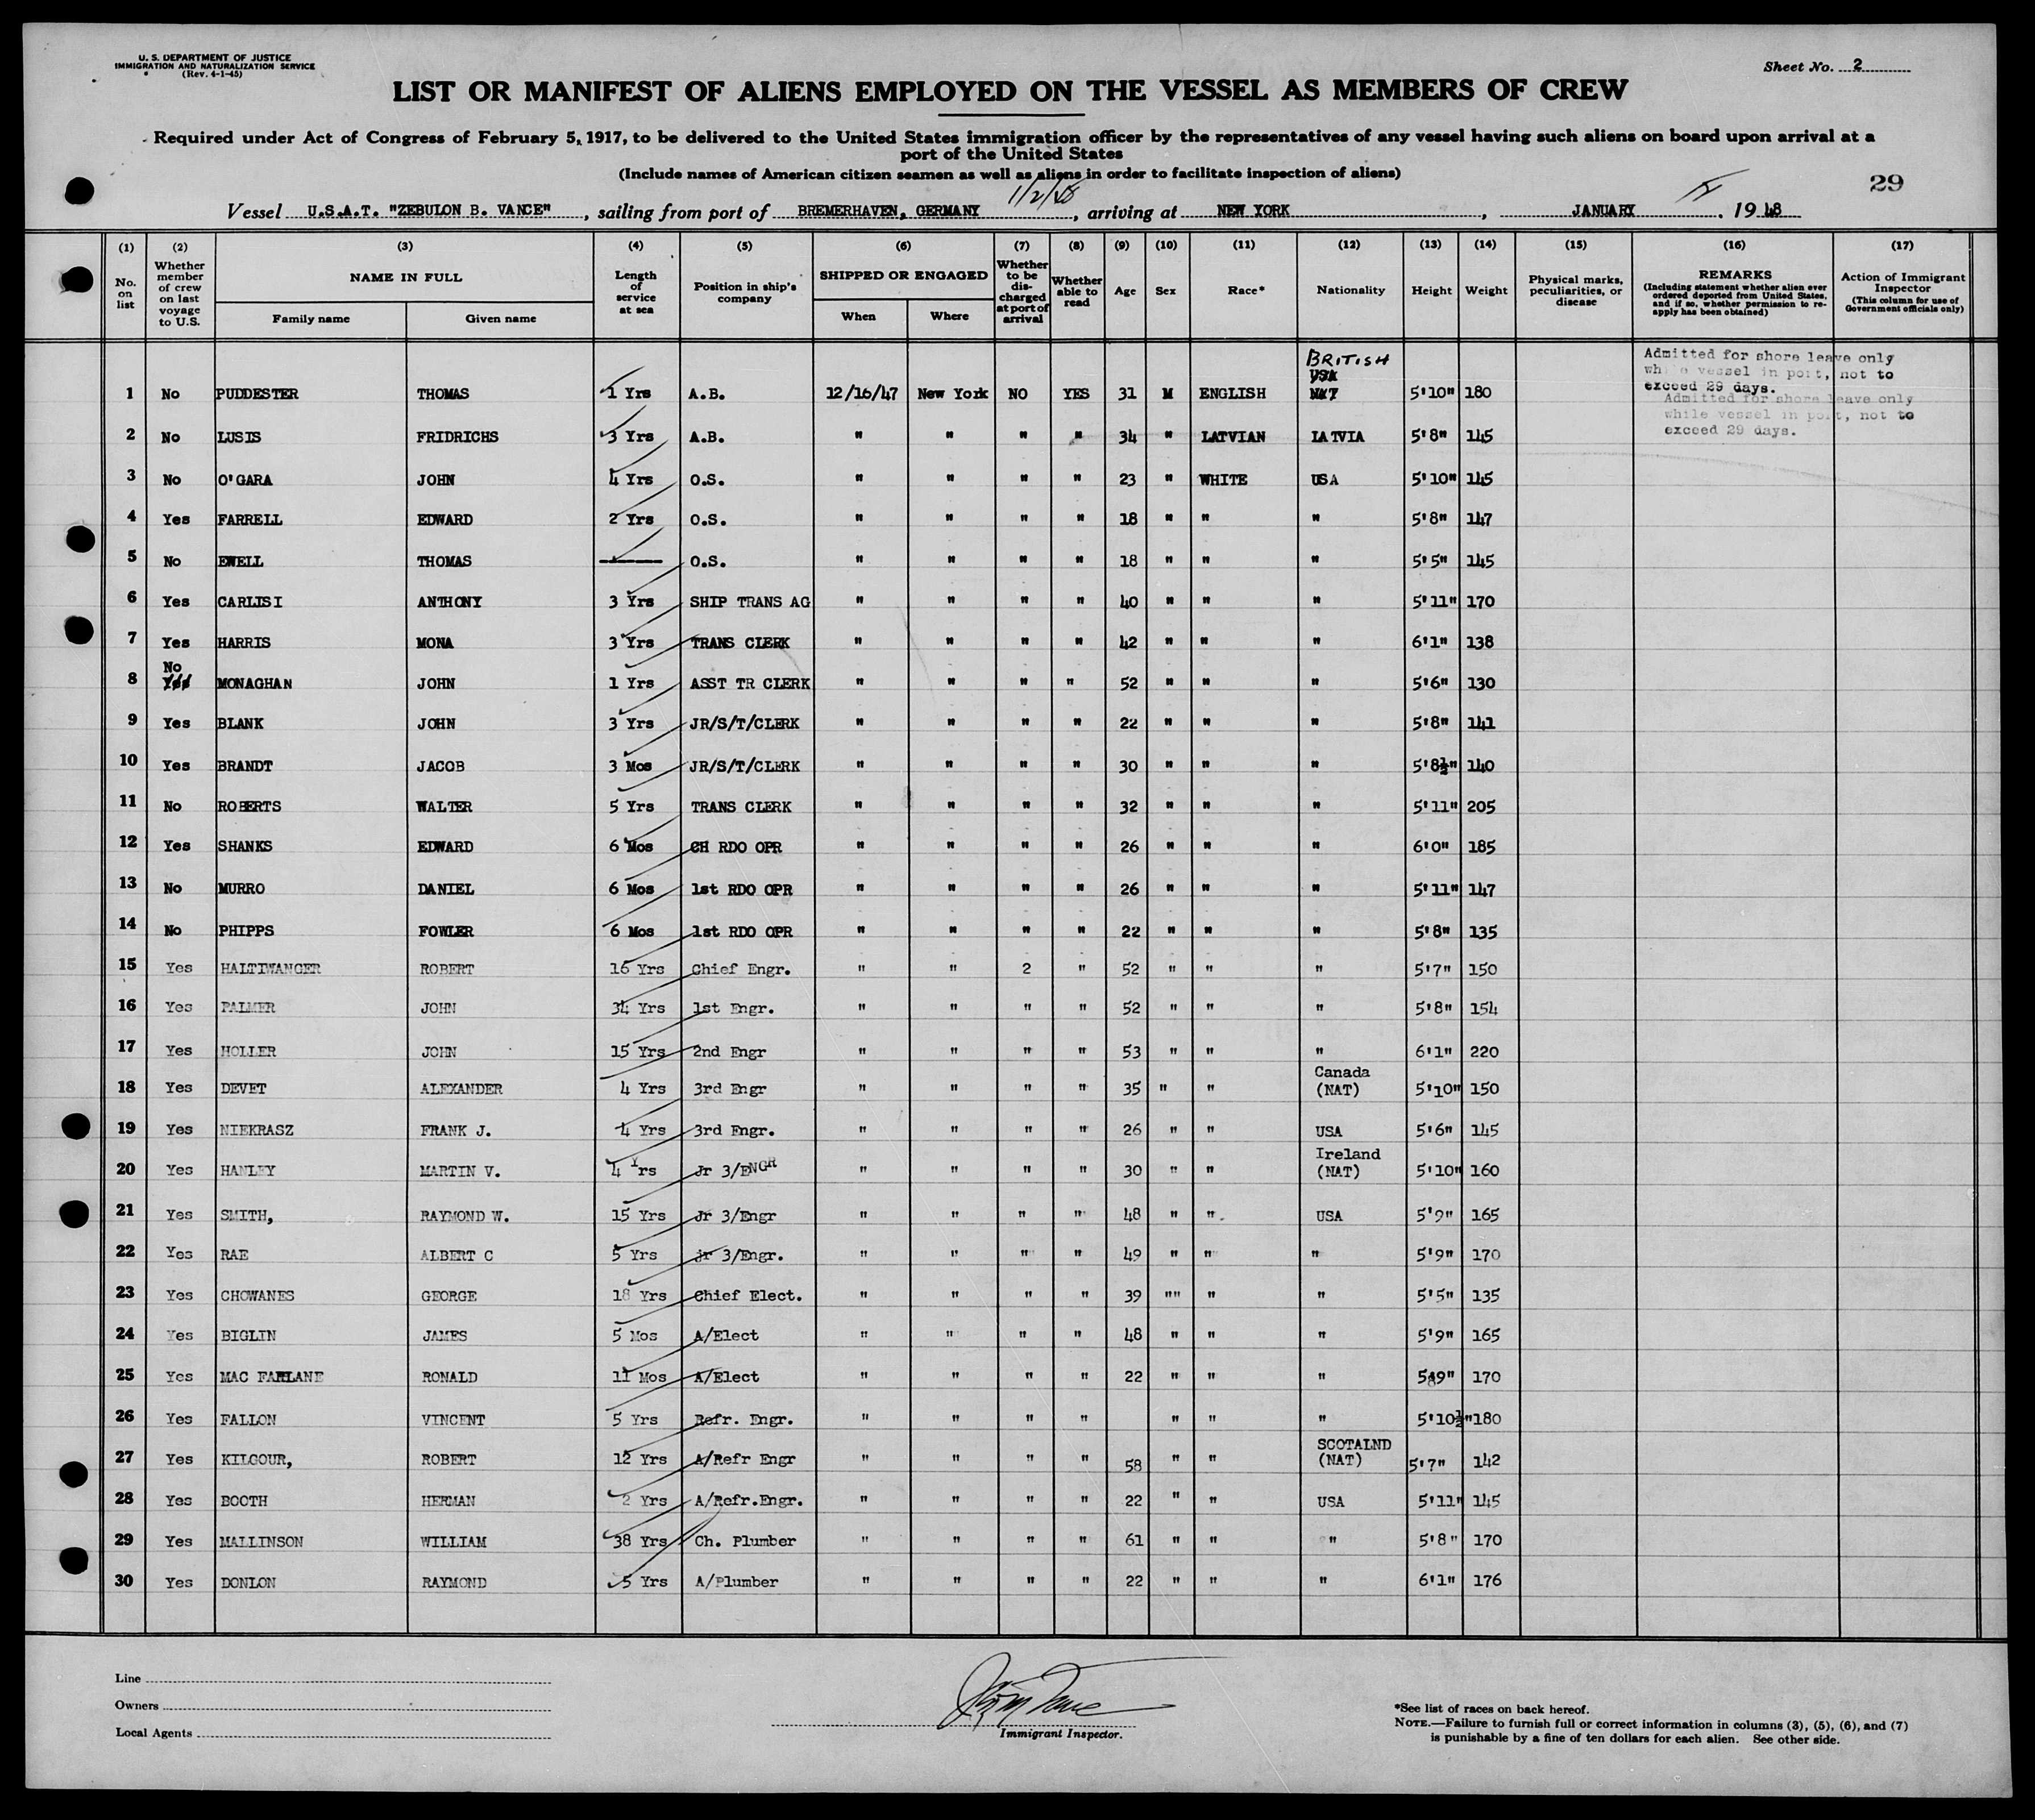 U. S. DEPARTMENT OF JUSTICE
IMMIGRATION AND NATURALIZATION SERVICE
(Rev. 4-1-45)
Sheet No. 2
LIST OR MANIFEST OF ALIENS EMPLOYED ON THE VESSEL AS MEMBERS OF CREW
Required under Act of Congress of February 5, 1917, to be delivered to the United States immigration officer by the representatives of any vessel having such aliens on board upon arrival at a
port of the United States
(Include names of American citizen seamen as well as aliens in order to facilitate inspection of aliens)
29
1/2/48
Vessel U.S.A.T. "ZEBULON B. VANCE", sailing from port of BREMERHAVEN, GERMANY, arriving at NEW YORK, JANUARY, 1948
(1) (2) (3) (4) (5) (6) (7) (8) (9) (10) (11) (12) (13) (14) (15) (16) (17)
No. on list
Whether member of crew on last voyage to U.S.
NAME IN FULL
Family name Given name
Length of service at sea
Position in ship's company
SHIPPED OR ENGAGED
When Where
Whether to be discharged at port of arrival
Whether able to read
Age
Sex
Race*
Nationality
Height
Weight
Physical marks, peculiarities, or disease
REMARKS
(Including statement whether alien ever ordered deported from United States, and if so, whether permission to re-apply has been obtained)
Action of Immigrant Inspector
(This column for use of Government officials only)
BRITISH
Admitted for shore leave only
while vessel in port, not to
exceed 29 days.
1 No PUDDESTER THOMAS 1 Yrs A.B. 12/16/47 New York NO YES 31 M ENGLISH USA NAT 5'10" 180
Admitted for shore leave only
while vessel in port, not to
exceed 29 days.
2 No LUSIS FRIDRICHS 3 Yrs A.B. " " " " 34 " LATVIAN LATVIA 5'8" 145
3 No O'GARA JOHN 4 Yrs O.S. " " " " 23 " WHITE USA 5'10" 145
4 Yes FARRELL EDWARD 2 Yrs O.S. " " " " 18 " " " 5'8" 147
5 No EWELL THOMAS ——— O.S. " " " " 18 " " " 5'5" 145
6 Yes CARLISI ANTHONY 3 Yrs SHIP TRANS AG " " " " 40 " " " 5'11" 170
7 Yes HARRIS MONA 3 Yrs TRANS CLERK " " " " 42 " " " 6'1" 138
No
8 Yes MONAGHAN JOHN 1 Yrs ASST TR CLERK " " " " 52 " " " 5'6" 130
9 Yes BLANK JOHN 3 Yrs JR/S/T/CLERK " " " " 22 " " " 5'8" 141
10 Yes BRANDT JACOB 3 Mos JR/S/T/CLERK " " " " 30 " " " 5'8½" 140
11 No ROBERTS WALTER 5 Yrs TRANS CLERK " " " " 32 " " " 5'11" 205
12 Yes SHANKS EDWARD 6 Mos CH RDO OPR " " " " 26 " " " 6'0" 185
13 No MURRO DANIEL 6 Mos 1st RDO OPR " " " " 26 " " " 5'11" 147
14 No PHIPPS FOWLER 6 Mos 1st RDO OPR " " " " 22 " " " 5'8" 135
15 Yes HALTIWANGER ROBERT 16 Yrs Chief Engr. " " 2 " 52 " " " 5'7" 150
16 Yes PALMER JOHN 34 Yrs 1st Engr. " " " " 52 " " " 5'8" 154
17 Yes HOLLER JOHN 15 Yrs 2nd Engr " " " " 53 " " " 6'1" 220
18 Yes DEVET ALEXANDER 4 Yrs 3rd Engr " " " " 35 " " Canada (NAT) 5'10" 150
19 Yes NIEKRASZ FRANK J. 4 Yrs 3rd Engr. " " " " 26 " " USA 5'6" 145
20 Yes HANLEY MARTIN V. 4 Yrs Jr 3/ENGR " " " " 30 " " Ireland (NAT) 5'10" 160
21 Yes SMITH, RAYMOND W. 15 Yrs Jr 3/Engr " " " " 48 " " USA 5'9" 165
22 Yes RAE ALBERT C 5 Yrs jr 3/Engr. " " " " 49 " " " 5'9" 170
23 Yes CHOWANES GEORGE 18 Yrs Chief Elect. " " " " 39 "" " " 5'5" 135
24 Yes BIGLIN JAMES 5 Mos A/Elect " " " " 48 " " " 5'9" 165
25 Yes MAC FARLANE RONALD 11 Mos A/Elect " " " " 22 " " " 5'9" 170
26 Yes FALLON VINCENT 5 Yrs Refr. Engr. " " " " " " " 5'10½" 180
27 Yes KILGOUR, ROBERT 12 Yrs A/Refr Engr " " " " 58 " " SCOTALND (NAT) 5'7" 142
28 Yes BOOTH HERMAN 2 Yrs A/Refr.Engr. " " " " 22 " " USA 5'11" 145
29 Yes MALLINSON WILLIAM 38 Yrs Ch. Plumber " " " " 61 " " " 5'8" 170
30 Yes DONLON RAYMOND 5 Yrs A/Plumber " " " " 22 " " " 6'1" 176
Line
Owners
Local Agents
Immigrant Inspector.
*See list of races on back hereof.
NOTE.—Failure to furnish full or correct information in columns (3), (5), (6), and (7)
is punishable by a fine of ten dollars for each alien. See other side.